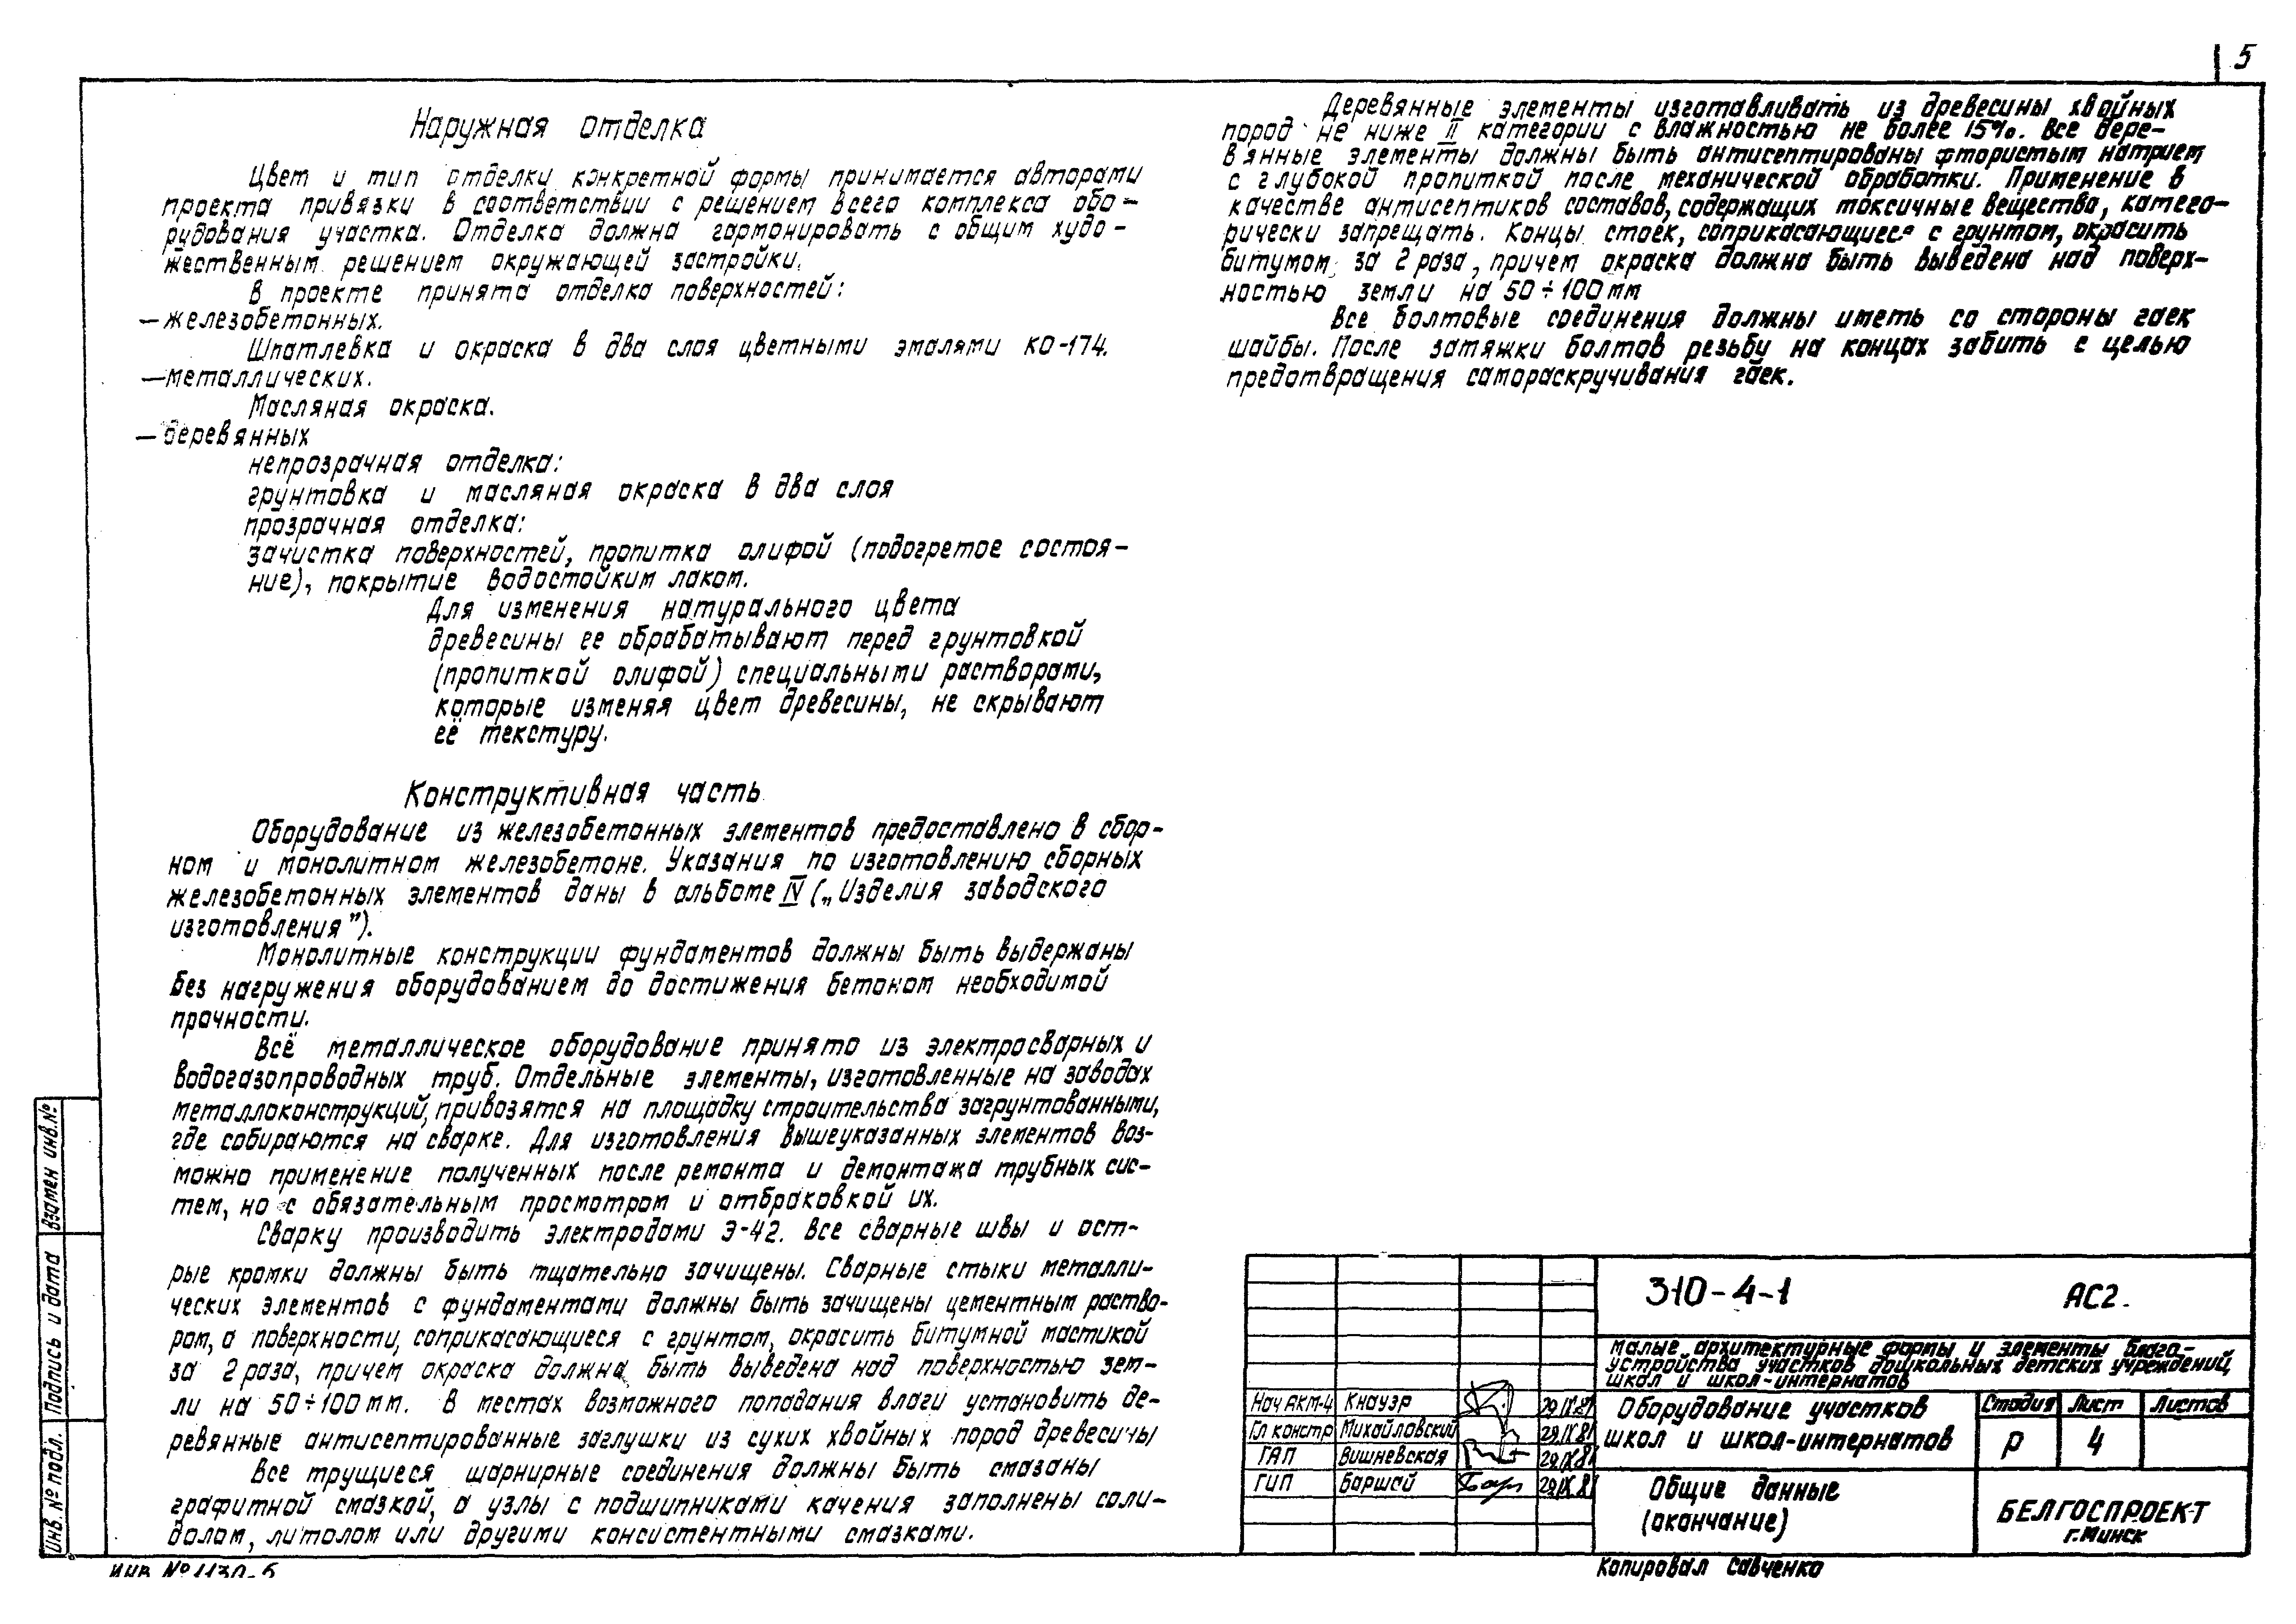 5
Наружная отделка
Цвет и тип отделки конкретной формы принимается авторами
проекта привязки в соответствии с решением всего комплекса обо-
рудования участка. Отделка должна гармонировать с общим худо-
жественным решением окружающей застройки.
В проекте принята отделка поверхностей:
— железобетонных.
Шпатлевка и окраска в два слоя цветными эмалями КО-174.
— металлических.
Масляная окраска.
— деревянных
непрозрачная отделка:
грунтовка и масляная окраска в два слоя
прозрачная отделка:
зачистка поверхностей, пропитка олифой (подогретое состоя-
ние), покрытие водостойким лаком.
Для изменения натурального цвета
древесины ее обрабатывают перед грунтовкой
(пропиткой олифой) специальными растворами,
которые изменяя цвет древесины, не скрывают
её текстуру.
Конструктивная часть
Оборудование из железобетонных элементов предоставлено в сбор-
ном и монолитном железобетоне. Указания по изготовлению сборных
железобетонных элементов даны в альбоме IV („Изделия заводского
изготовления").
Монолитные конструкции фундаментов должны быть выдержаны
без нагружения оборудованием до достижения бетоном необходимой
прочности.
Всё металлическое оборудование принято из электросварных и
водогазопроводных труб. Отдельные элементы, изготовленные на заводах
металлоконструкций, привозятся на площадку строительства загрунтованными,
где собираются на сварке. Для изготовления вышеуказанных элементов воз-
можно применение полученных после ремонта и демонтажа трубных сис-
тем, но с обязательным просмотром и отбраковкой их.
Сварку производить электродами Э-42. Все сварные швы и ост-
рые кромки должны быть тщательно зачищены. Сварные стыки металли-
ческих элементов с фундаментами должны быть зачищены цементным раство-
ром, а поверхности, соприкасающиеся с грунтом, окрасить битумной мастикой
за 2 раза, причем окраска должна быть выведена над поверхностью зем-
ли на 50÷100мм. В местах возможного попадания влаги установить де-
ревянные антисептированные заглушки из сухих хвойных пород древесины
Все трущиеся шарнирные соединения должны быть смазаны
графитной смазкой, а узлы с подшипниками качения заполнены соли-
долом, литолом или другими консистентными смазками.
Деревянные элементы изготавливать из древесины хвойных
пород не ниже II категории с влажностью не более 15%. Все дере-
вянные элементы должны быть антисептированы фтористым натрием
с глубокой пропиткой после механической обработки. Применение в
качестве антисептиков составов, содержащих токсичные вещества, катего-
рически запрещать. Концы стоек, соприкасающиеся с грунтом, окрасить
битумом за 2 раза, причем окраска должна быть выведена над поверх-
ностью земли на 50÷100мм
Все болтовые соединения должны иметь со стороны гаек
шайбы. После затяжки болтов резьбу на концах забить с целью
предотвращения самораскручивания гаек.
Взамен инв.№
Подпись и дата
Инв. № подл.
310-4-1 АС2.
Малые архитектурные формы и элементы благо-
устройства участков дошкольных детских учреждений,
школ и школ-интернатов
Нач АКМ-4 Кнауэр 29.IX.81
Гл констр Михайловский 29.IX.81
ГАП Вишневская 29.IX.81
ГИП Баршай 29.IX.81
Оборудование участков
школ и школ-интернатов
Стадия Лист Листов
Р 4
Общие данные
(окончание)
БЕЛГОСПРОЕКТ
г.Минск
Копировал Савченко
ИНВ №1130-5